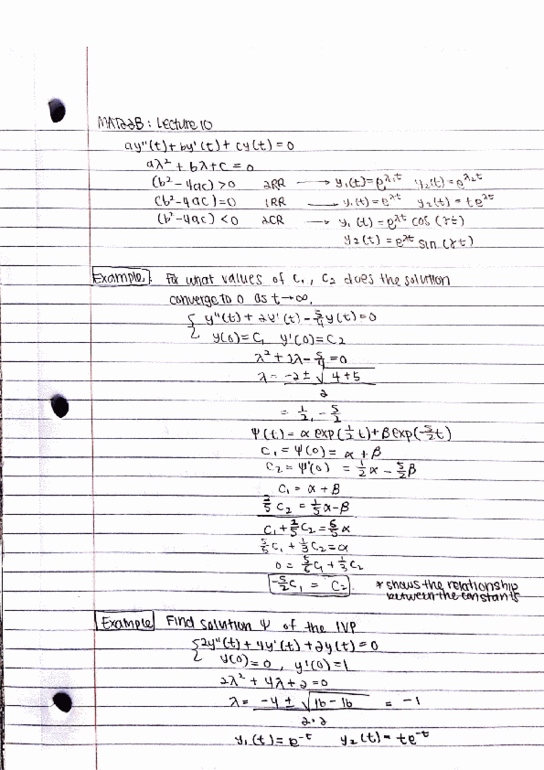 MAT22B: Lecture 10
ay''(t) + by'(t) + cy(t) = 0
aλ² + bλ + c = 0
(b²-4ac) > 0 2RR → y₁(t) = e^λ₁t y₂(t) = e^λ₂t
(b²-4ac) = 0 1RR → y₁(t) = e^λt y₂(t) = te^λt
(b²-4ac) < 0 2CR → y₁(t) = e^λt cos(γt)
y₂(t) = e^λt sin(γt)
Example: For what values of C₁, C₂ does the solution
converge to 0 as t→∞.
{ y''(t) + 2y'(t) - 5/4 y(t) = 0
y(0) = C₁ y'(0) = C₂
λ² + 2λ - 5/4 = 0
λ = -2 ± √4+5
2
= 1/2, -5/2
Ψ(t) = α exp(1/2 t) + β exp(-5/2 t)
C₁ = Ψ(0) = α + β
C₂ = Ψ'(0) = 1/2 α - 5/2 β
C₁ = α + β
2/5 C₂ = 1/5 α - β
C₁ + 2/5 C₂ = 6/5 α
5/6 C₁ + 1/3 C₂ = α
0 = 5/6 C₁ + 1/3 C₂
-5/2 C₁ = C₂. * shows the relationship
between the constants
Example Find solution Ψ of the IVP
{ 2y''(t) + 4y'(t) + 2y(t) = 0
y(0) = 0, y'(0) = 1
2λ² + 4λ + 2 = 0
λ = -4 ± √16-16 = -1
2·2
y₁(t) = e^-t y₂(t) = te^-t